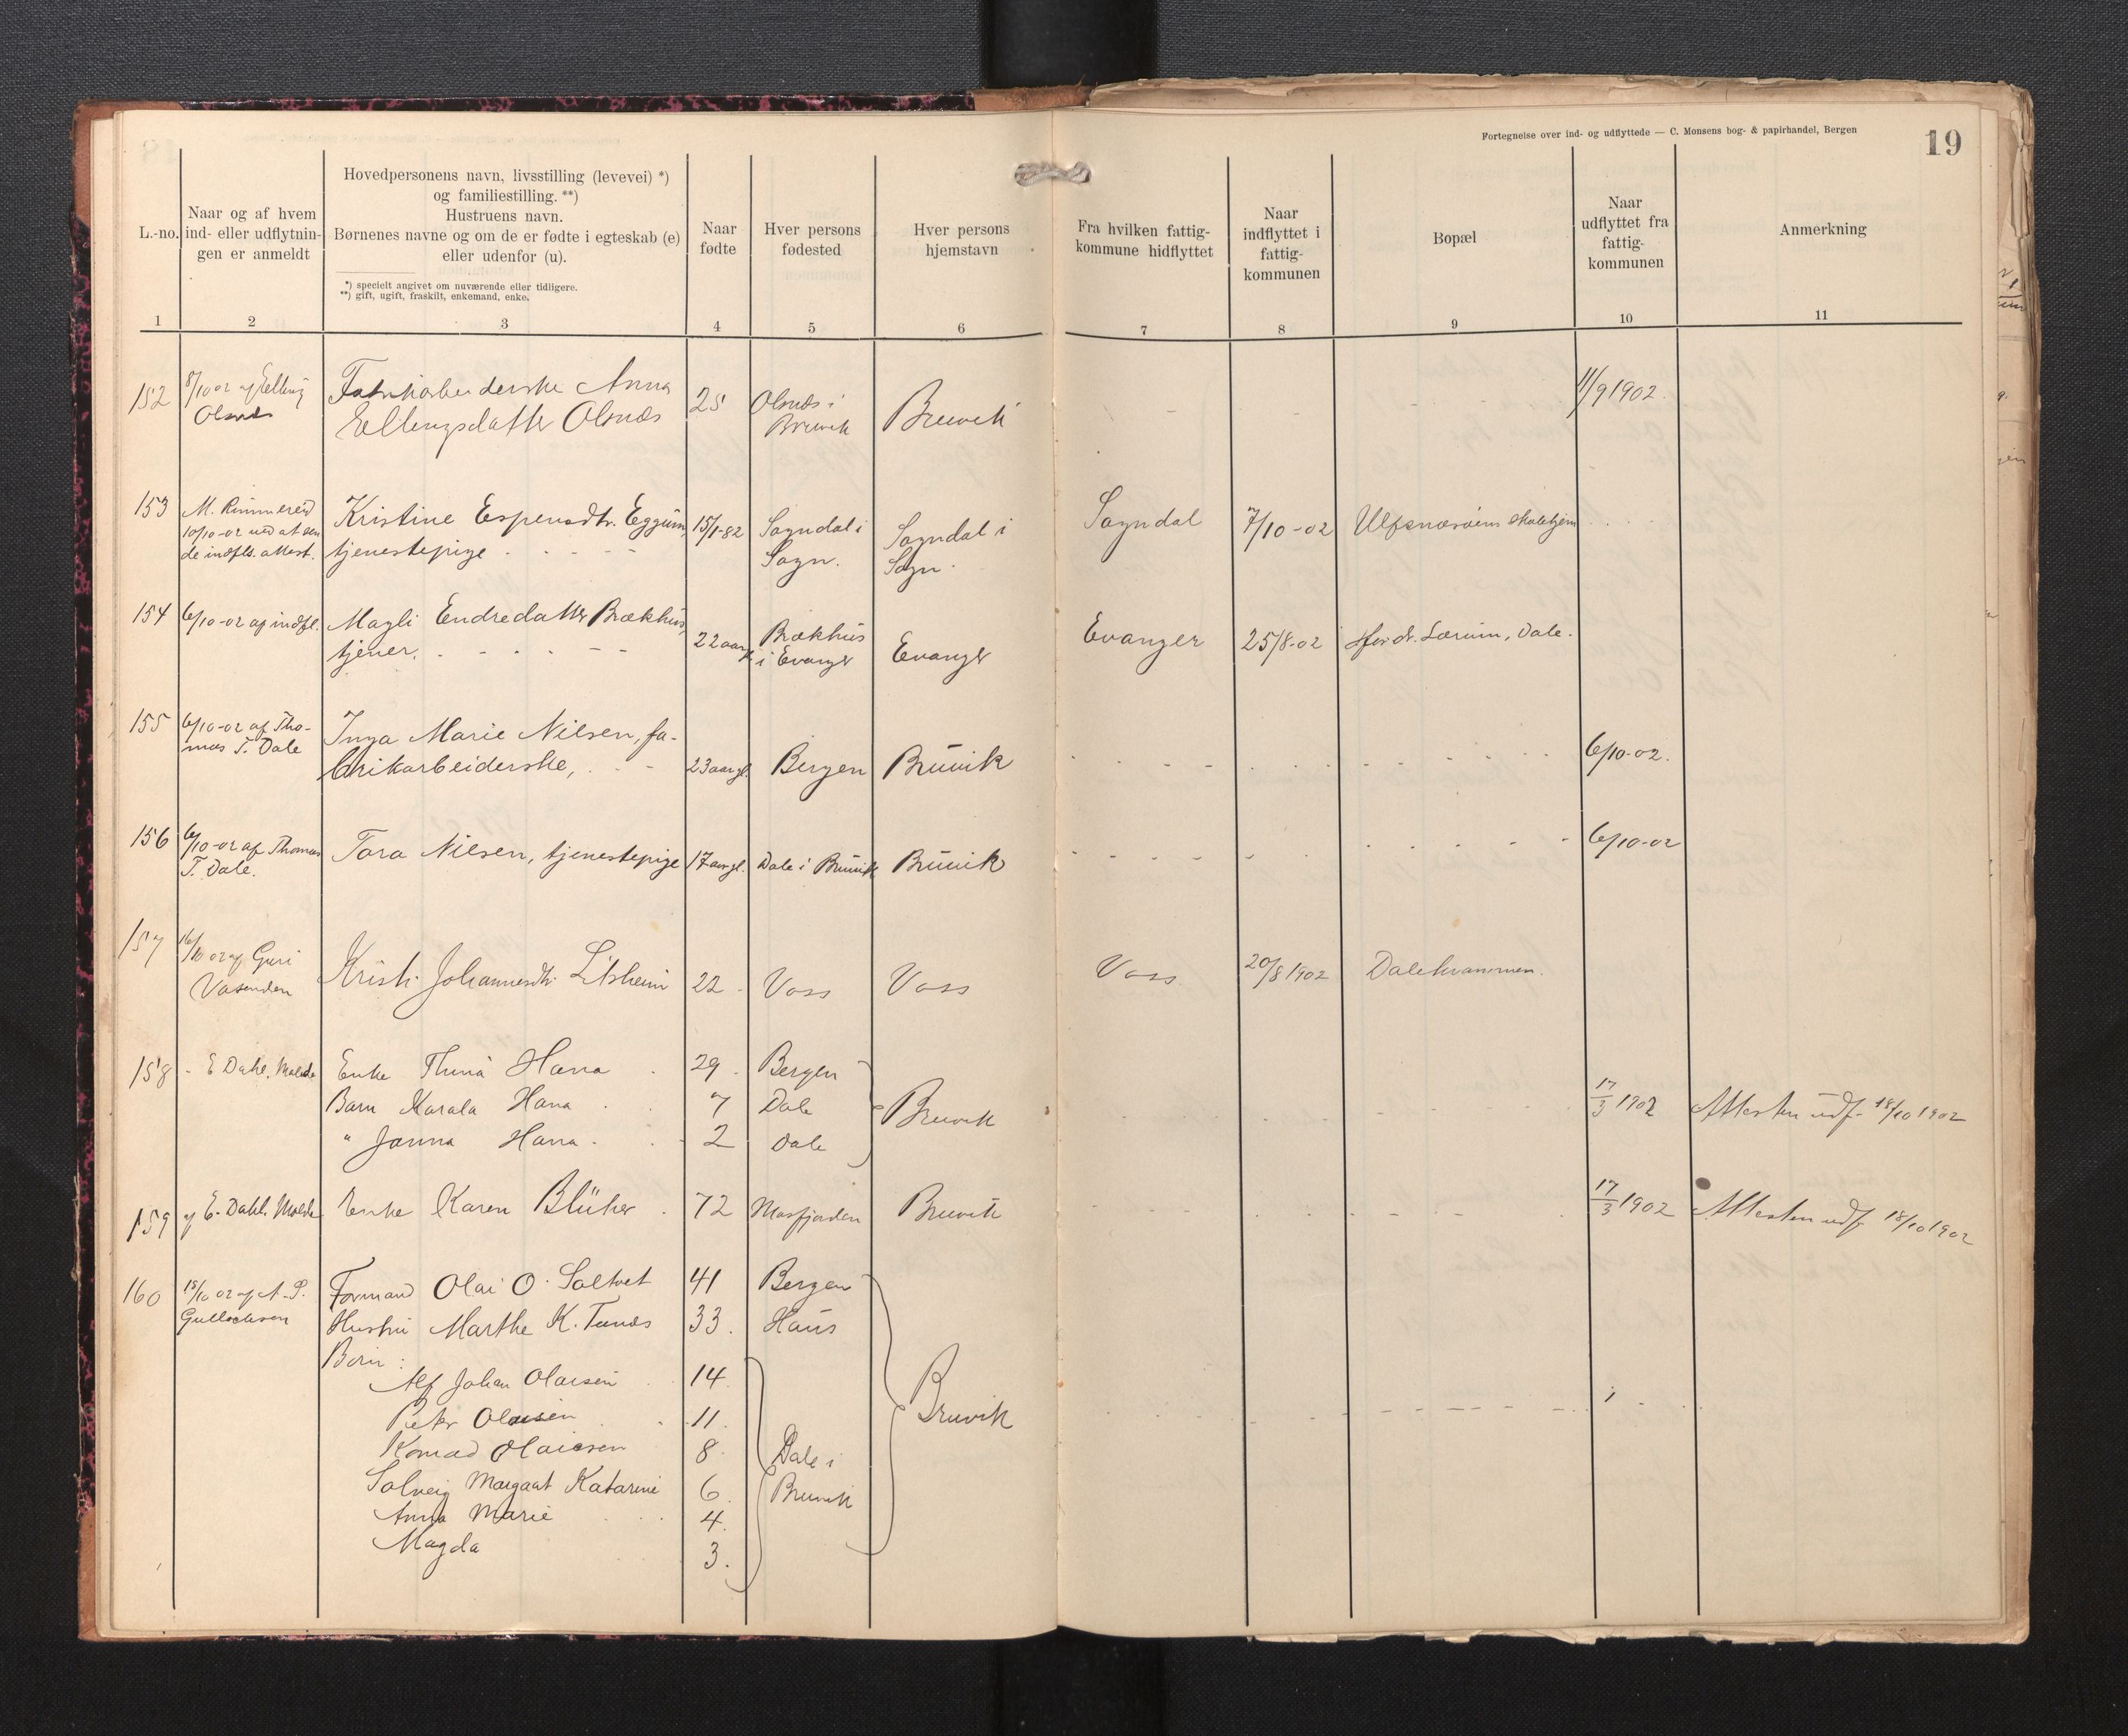 Fortegnelse over ind- og udflyttede — C. Monsens bog- & papirhandel, Bergen
19
L.-no.
Naar og af hvem
ind- eller udflytnin-
gen er anmeldt
Hovedpersonens navn, livsstilling (levevei) *)
og familiestilling. **)
Hustruens navn.
Børnenes navne og om de er fødte i egteskab (e)
eller udenfor (u).
*) specielt angivet om nuværende eller tidligere.
**) gift, ugift, fraskilt, enkemand, enke.
Naar
fødte
Hver persons
fødested
Hver persons
hjemstavn
Fra hvilken fattig-
kommune hidflyttet
Naar
indflyttet i
fattig-
kommunen
Bopæl
Naar
udflyttet fra
fattig-
kommunen
Anmerkning
1 2 3 4 5 6 7 8 9 10 11
152 8/10 02 af Elling
Olsnæs
Fabrikarbeiderske Anna
Ellingsdatter Olsnæs
25
Olsnæs i
Bruvik
Bruvik
11/9 1902.
153 M. Rimmereid
10/10-02 ved at sen
de indfls. attest.
Kristine Espensdtr. Eggum,
tjenestepige
15/1-82
Sogndal i
Sogn.
Sogndal i
Sogn.
Sogndal
7/10-02
Ulfsnæsøens skolehjem
154 6/10-02 af indfl.
Magli Endredatter Brækhus,
tjener.
22 aar gl.
Brækhus
i Evanger
Evanger
Evanger
25/8-02
hos dr. Lærum, Dale.
155 6/10-02 af Tho-
mas T. Dale
Inga Marie Nilsen, fa-
brikarbeiderske,
23 aar gl.
Bergen
Bruvik
6/10-02.
156 6/10-02 af Thomas
T. Dale.
Tora Nilsen, tjenestepige
17 aar gl.
Dale i Bruvik
Bruvik
6/10-02
157 16/10 02 af Guri
Vasenden
Kristi Johannesdtr. Litsheim
22
Voss
Voss
Voss
20/8 1902
Dalekvammen.
158 - E Dahl. Molde
Enke Thina Hana
29
Bergen
Barn Karala Hana
7
Dale
" Janna Hana
2
Dale
Bruvik
17/3 1902
Attesten udf. 18/10 1902
159 af E. Dahl. Molde
Enke Karen Blüher
72
Masfjorden
Bruvik
17/3 1902
Attesten udf 18/10 1902
160 15/10 02 af A. P.
Gullachsen
Formand Olai O. Saltvet
41
Bergen
Hustru Marthe K. Tunæs
33.
Haus
Børn:
Alf Johan Olaisen
14.
Peter Olaisen
11.
Konrad Olaisen
8
Solveig Margaret Katarine
6.
Anna Marie
4.
Magda
3.
Dale i
Bruvik
Bruvik